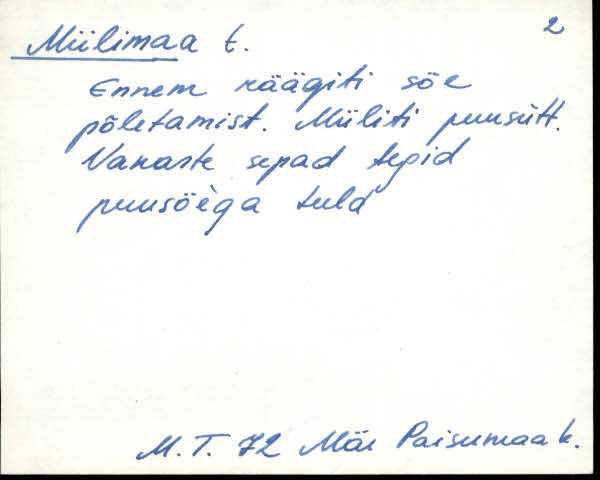 Miilimaa t. 2
Ennem räägiti söe
põletamist. Miiliti puusütt.
Vanaste sepad tegid
puusöèga tuld
M.T. 72 Mär Paisumaa k.